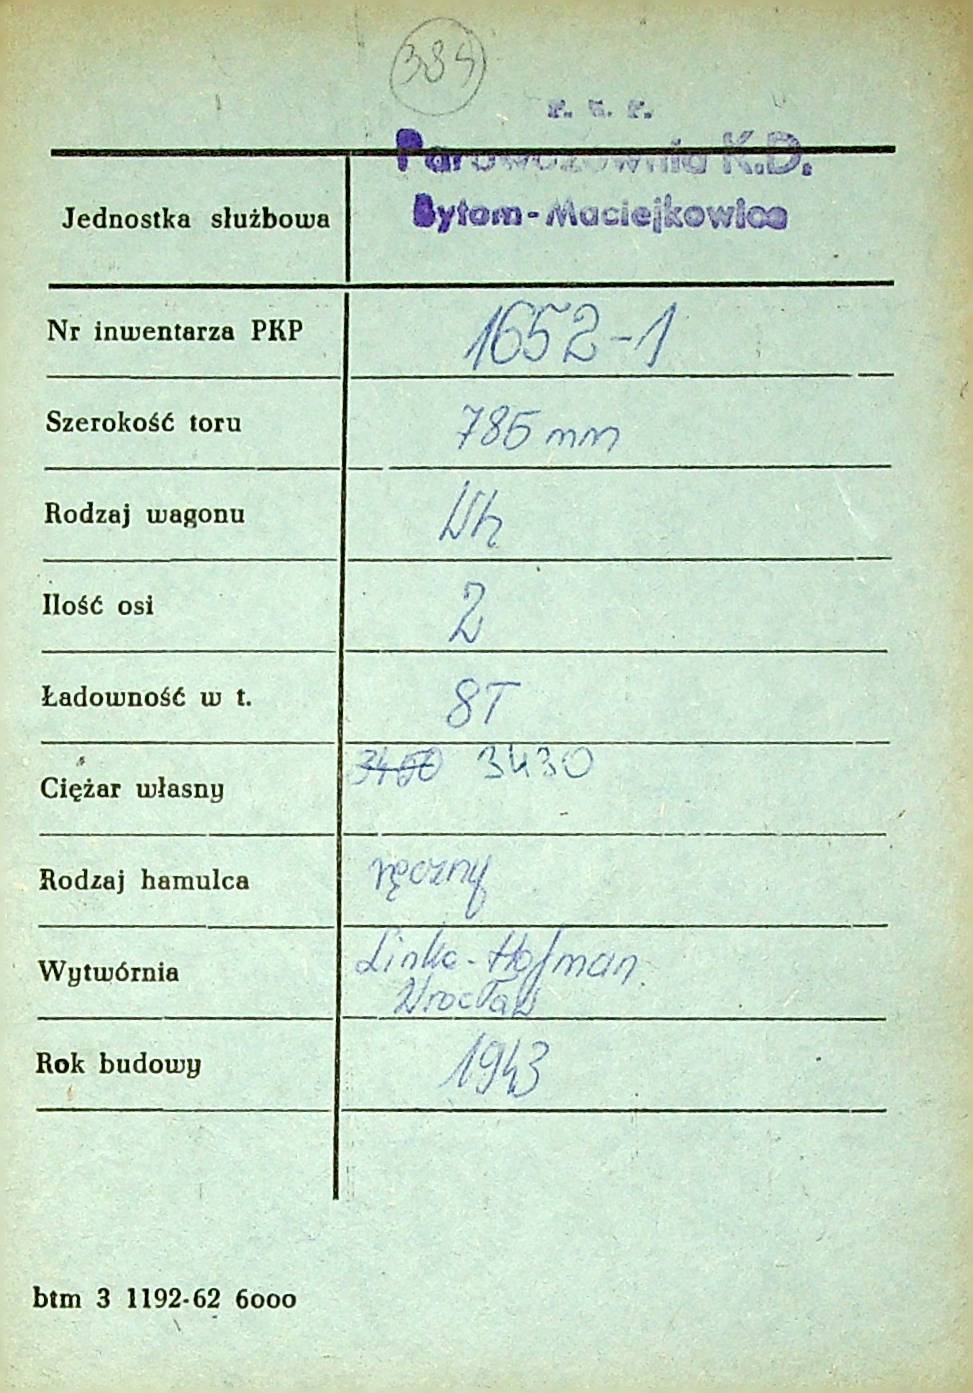 384
P. K. P.
Parowozownia K.D.
Jednostka służbowa
Bytom-Maciejkowice
Nr inwentarza PKP 1652-1
Szerokość toru 785 mm
Rodzaj wagonu Wh
Ilość osi 2
Ładowność w t. 8T
Ciężar własny 3450 3430
Rodzaj hamulca ręczny
Wytwórnia Linke-Hofman
Wrocław
Rok budowy 1943
btm 3 1192-62 6000